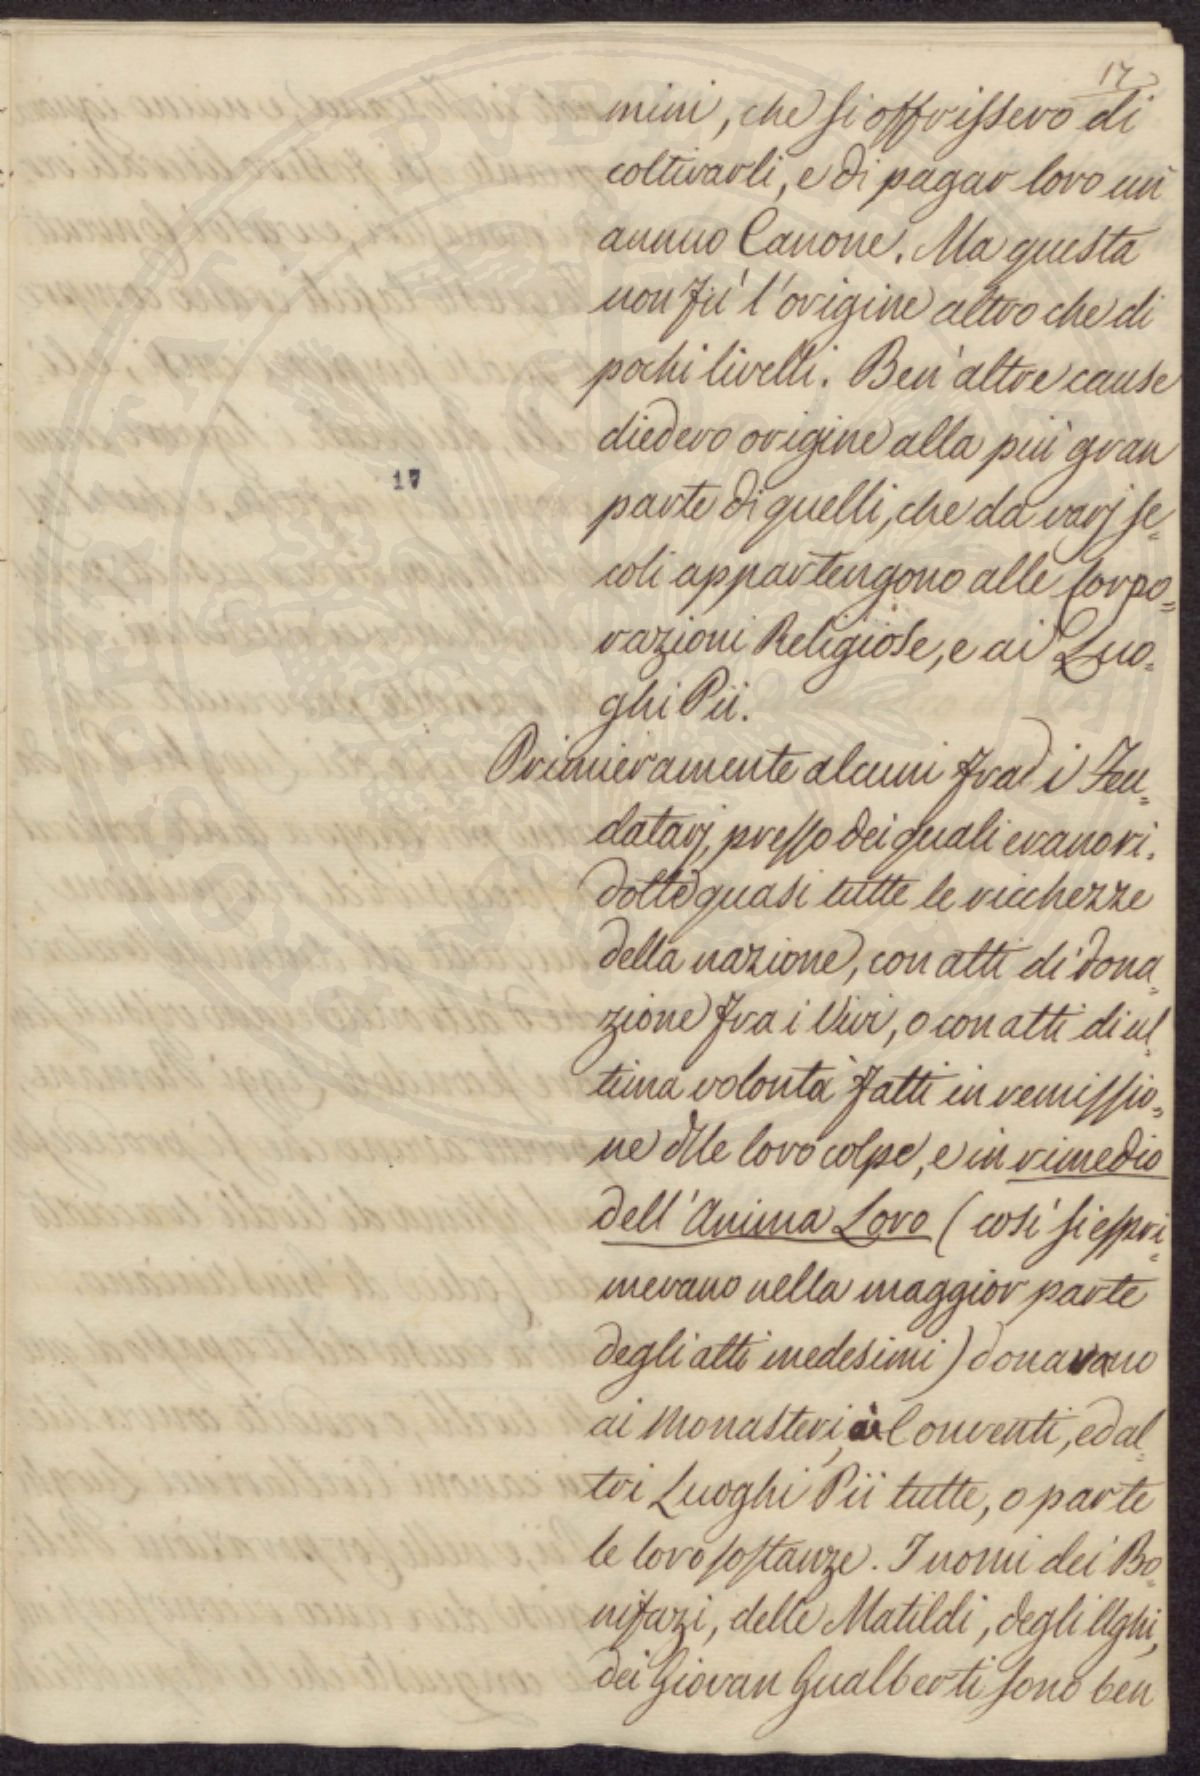 17
mini, che si offrissero di
coltivarli, e di pagar loro un
annuo Canone. Ma questa
non fù l'origine altro che di
pochi livelli. Ben altre cause
diedero origine alla più gran
17
parte di quelli, che da varj se=
coli appartengono alle Corpo=
razioni Religiose, e ai Luo=
ghi Pii.
Primieramente alcuni fra i Feu=
datarj, presso dei quali erano ri=
dotte quasi tutte le ricchezze
della nazione, con atti di dona=
zione fra i Vivi, o con atti di ul=
tima volontà fatti in remissio=
ne dlle loro colpe, e in rimedio
dell'Anima Loro (così si espri=
mevano nella maggior parte
degli atti medesimi) donavano
ai Monasteri, ai Conventi, ed al=
tri Luoghi Pii tutte, o parte
le loro sostanze. I nomi dei Bo=
nifazi, delle Matildi, degli Ughi,
dei Giovan Gualberti sono ben